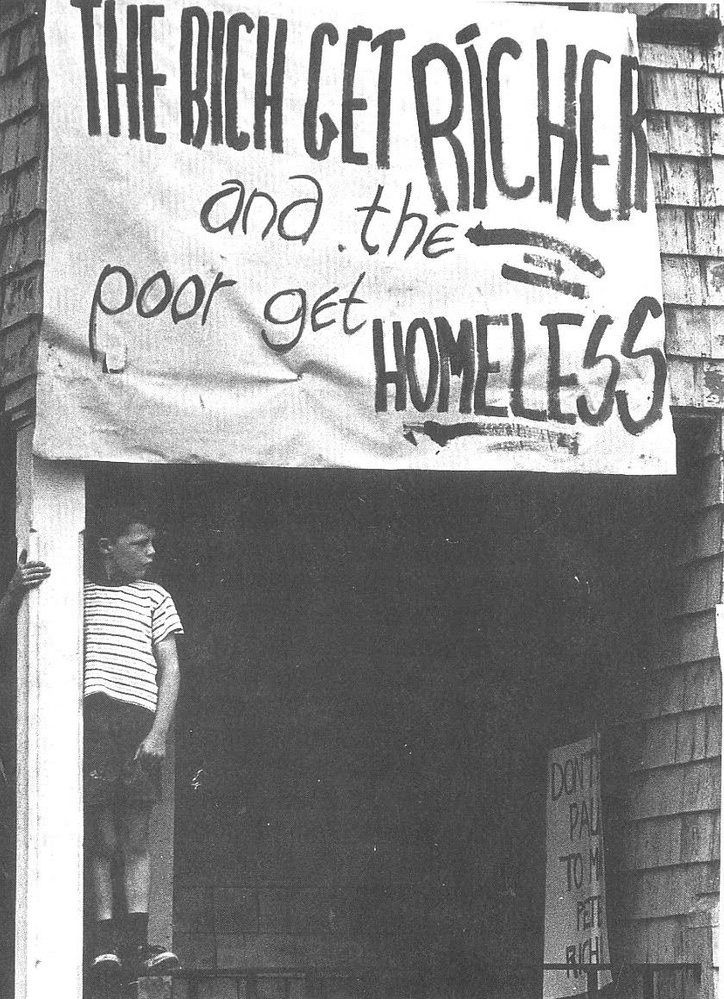 THE RICH GET RICHER
and the
poor get HOMELESS
DON'T
PAU
TO M
PET
RICH